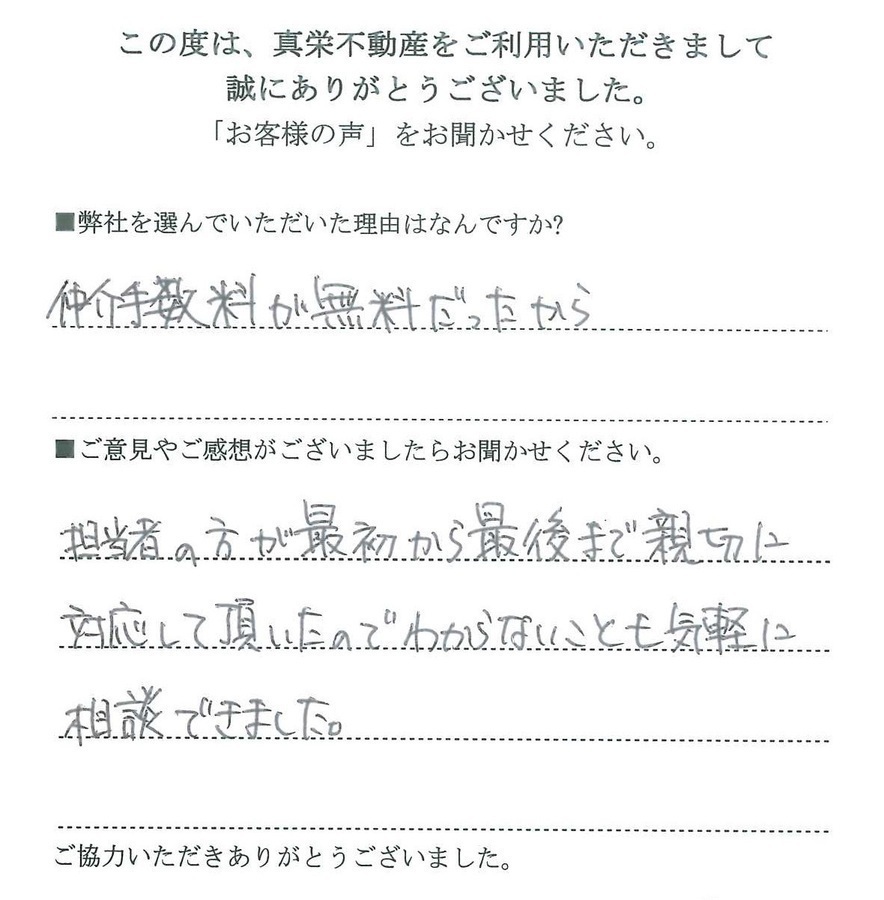 この度は、真栄不動産をご利用いただきまして
誠にありがとうございました。
「お客様の声」をお聞かせください。
■弊社を選んでいただいた理由はなんですか?
仲介手数料が無料だったから
■ご意見やご感想がございましたらお聞かせください。
担当者の方が最初から最後まで親切に
対応して頂いたのでわからないことも気軽に
相談できました。
ご協力いただきありがとうございました。